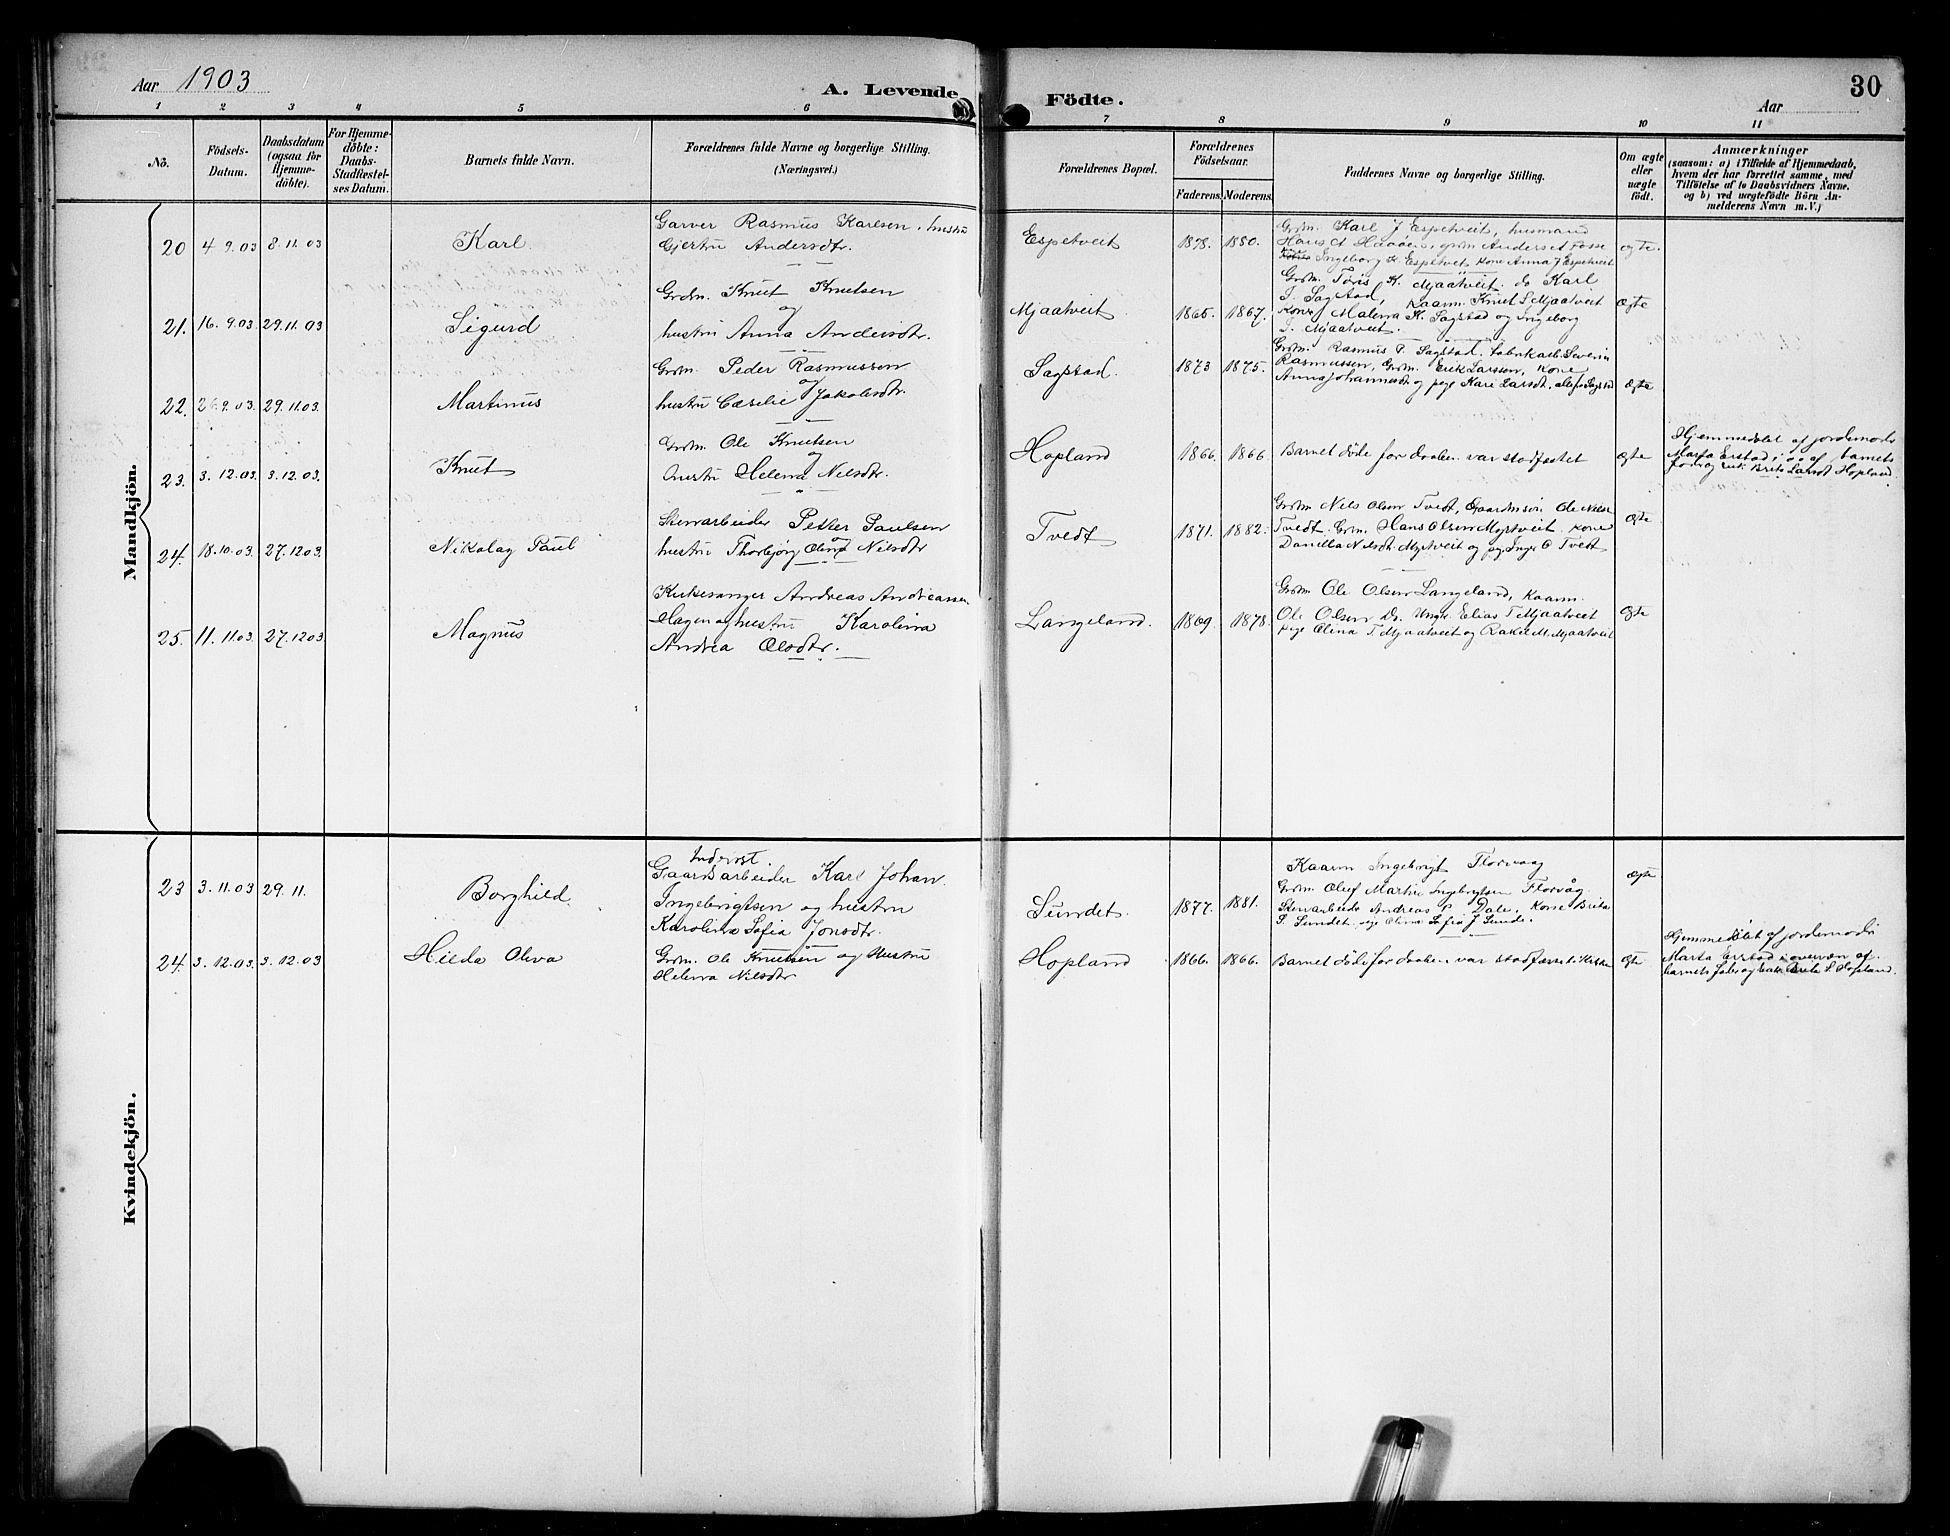 Aar 1903
A. Levende
Födte.
Aar
30
1 2 3 4 5 6 7 8 9 10 11
No.
Födsels-
Datum.
Daabsdatum
(ogsaa for
Hjemme-
döbte).
For Hjemme-
döbte:
Daabs-
Stadfæstel-
ses Datum.
Barnets fulde Navn.
Forældrenes fulde Navne og borgerlige Stilling.
(Næringsvei.)
Forældrenes Bopæl.
Forældrenes
Födselsaar.
Faderens. Moderens.
Faddernes Navne og borgerlige Stilling.
Om ægte
eller
uægte
födt.
Anmærkninger
(saasom: a) i Tilfælde af Hjemmedaab,
hvem der har forrettet samme, med
Tilföielse af to Daabsvidners Navne,
og b) ved uægtefödte Börn An-
melderens Navn m. V.)
Mandkjön.
20 4.9.03 8.11.03 Karl.
Garver Rasmus Karlsen, hustru
Gjertru Andersdtr.
Espetveit 1878. 1880.
Grdm. Karl J Espetveit, husmand
Hans grdm Anders Fosse
Ingeborg K Espetvet, kone Anna J Espetveit
ægte.
21. 16.9.03 29.11.03 Sigurd
Grdm. Knut Knutsen
og
hustru Anna Andersdtr.
Mjaatveit 1865. 1867.
Grdm. K. Mjaatveit. do Karl
S. Sagstad, Kaarm. Knut S Mjaatveit
Kone Malena K. Sagstad og Ingeborg
S. Mjaatveit.
ægte
22. 26.9.03. 29.11.03. Martinus
Grdm. Peder Rasmussen
og
hustru Cæselie Jakobsdtr.
Sagstad. 1873 1875.
Grdm. Rasmus P. Sagstad, fabrikarb. Severin
Rasmussen, Grdm. Erik Larssen, Kone
Anna Johannesdt og pige Kari Larsdt, Sagstad
ægte
23. 3.12.03. 3.12.03. Knut
Grdm. Ole Knutsen
og
hustru Helena Nilsdtr.
Hopland 1866. 1866.
Barnet döde för daaben var stadfæstet
ægte
Hjemmedöbt af jordemoder
Marta Erstad i o. af barnets
fader og enk. Brite Larsdt Hopland
24. 18.10.03 27.12.03 Nikolay Paul
Stenarbeider Petter Paulsen
og
hustru Thorbjørg Olina Nilsdtr
Tvedt 1871. 1882.
Grdm Nils Olsen Tvedt, Gaardmsön Ole Nilsen
Tvedt. Grdm. Hans Olsen Myrtveit, Kone
Daniella Nilsdt Myrtveit og pige Inger O Tvedt
ægte
25. 11.11.03. 27.12.03 Magnus
Kirkesanger Andreas Andreassen
Hagen og hustru Karolina
Andrea Olsdtr.
Langeland. 1869. 1878.
Grdm Ole Olsen Langeland, Kaarm.
Ole Olsen Do. Ungk. Elias T Mjaatveit
pige Olina T. Mjaatveit og Rakel M. Mjaatveit
ægte
Kvindekjön.
23 3.11.03 29.11. Borghild.
Inderst.
Gaardarbeider Karl Johan
Ingebrigtsen og hustru
Karolina Sofia Jonsdtr.
Sundet. 1877. 1881.
Kaarm Ingebrigt Florvaag
Grdm. Oluf Martin Ingebrigtsen Florvåg.
Stenarbeider Andreas P Dale, Kone Brita
S. Sundet, pige Olina Sofia J Sunde.
ægte
24. 3.12.03. 3.12.03 Hilda Oliva
Grdm. Ole Knutsen og Hustru
Helena Nilsdtr
Hopland 1866. 1866.
Barnet döde för daaben var stadfæstet i kirken
ægte
Hjemmedöbt af jordemoder
Marta Erstad i overvær af
barnets fader og enke Brita L Hopland.